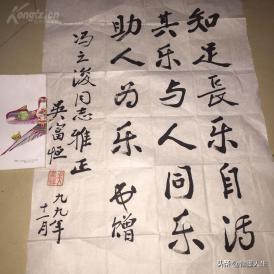 知足長乐自得
其乐与人同乐
助人为乐 书赠
冯立浚同志雅正
吴富恒
九九年
十二月
Kongfz.com